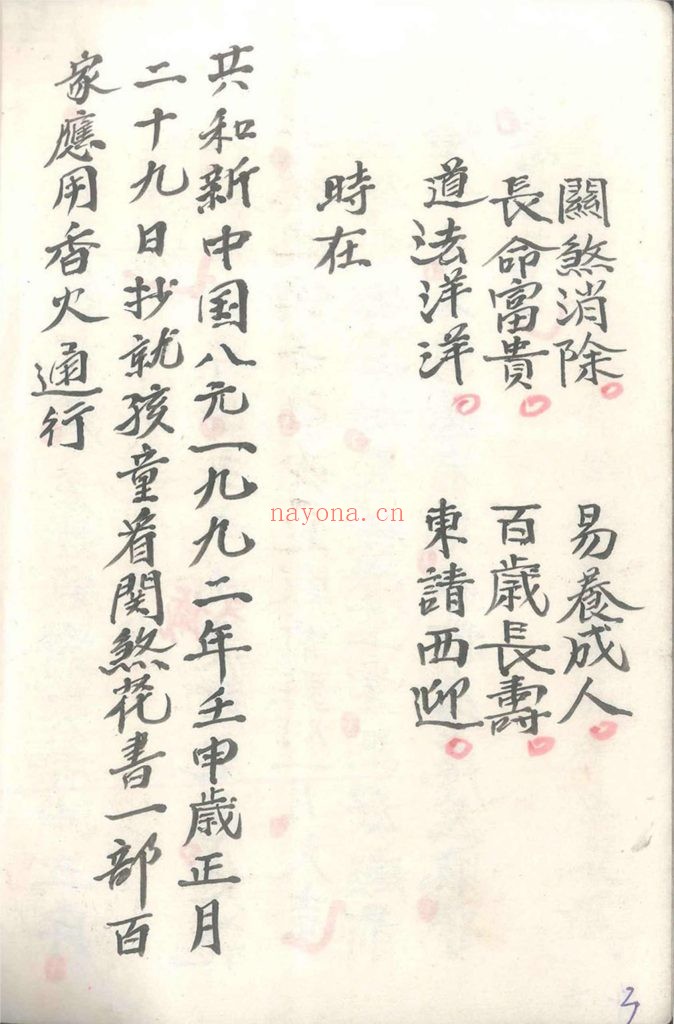 關煞消除 易養成人
長命富貴 百歲長壽
道法洋洋 東請西迎
時在
共和新中国八元一九九二年壬申歲正月
二十九日抄就孩童看関煞花書一部百
家應用香火通行
nayona.cn
3